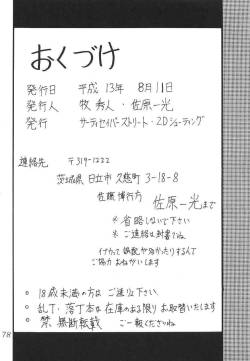 おくづけ
発行日 平成13年 8月11日
発行人 牧 秀人・佐原一光
発行 サーティセイバーストリート・2Dシューティング
連絡先 〒319-1222
茨城県 日立市 久慈町 3-18-8
佐藤 博行方
佐原一光まで
*省略しないで下さい
*ご連絡は封書でね。
ご協力おねがいします
・18歳未満の方は ご遠慮下さい。
・乱丁・落丁本は在庫のある限りお取替いたします
・禁 無断転載 ご一報くださいね
78